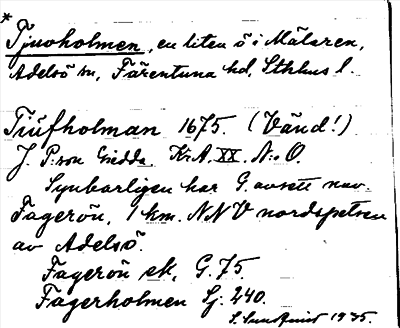 *
Tjuvholmen, en liten ö i Mälaren,
Adelsö sn, Färentuna hd, Sthlms l.
Tiüfholman 1675. (Vänd!)
J. P:son Gedda. Kr.A. XX. N:o O.
Synbarligen har G. avsett nuv.
Fagerön, 1 km. NNV nordspetsen
av Adelsö.
Fagerön ek, G. 75.
Fagerholmen Lj. 240.
S. Sundquist 1935.